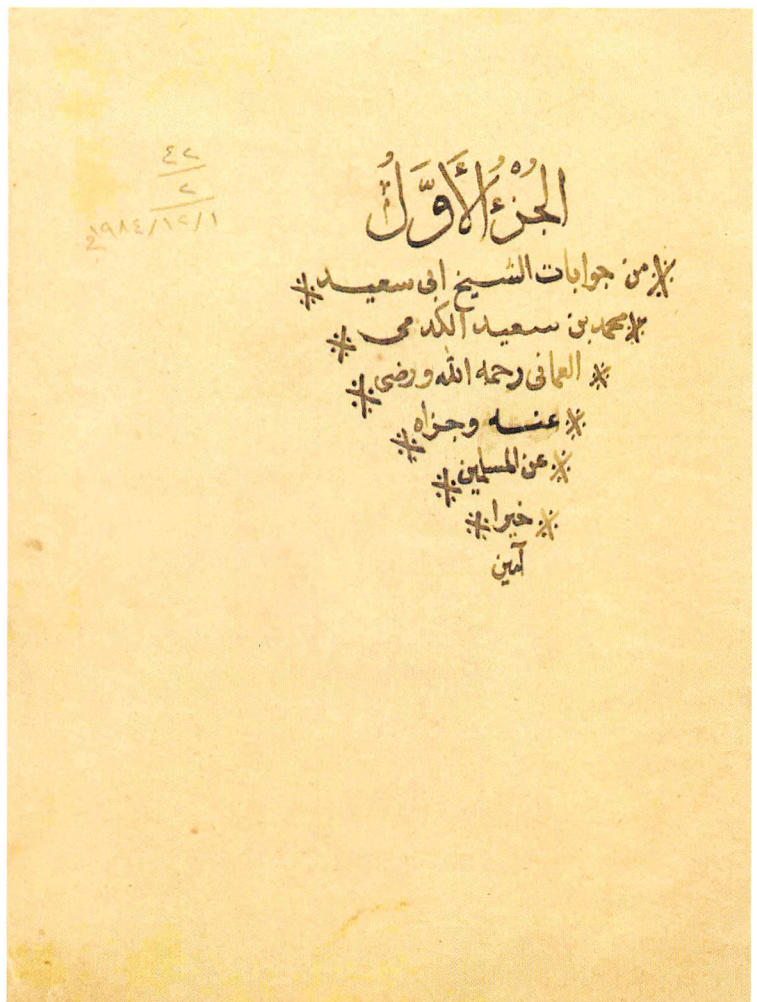 ٤٢
٢
١٩٨٤/١٢/١م
الجُزْءُ الأَوَّلُ
من جوابات الشيخ ابى سعيد
محمد بن سعيد الكدمى
العمانى رحمه الله ورضى
عنه وجزاه
عن المسلمين
خيرا
آمين